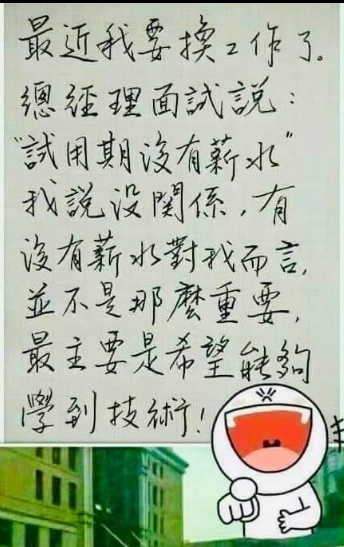 最近我要換工作了。
總經理面試說：
“試用期沒有薪水”
我說沒關係，有
沒有薪水對我而言，
並不是那麼重要，
最主要是希望能夠
學到技術！